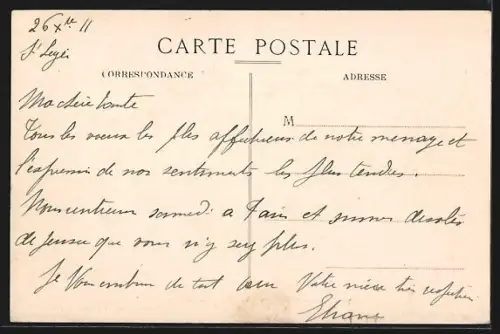 26 Xbre 11
St Leger
CARTE POSTALE
CORRESPONDANCE
ADRESSE
M
Ma chère tante
Tous les vœux les plus affectueux de notre ménage et
l'expression de nos sentiments les plus tendres.
Nous rentrons samedi a Paris et sommes désolés
de penser que vous n'y sey plus.
Je vous embrasse de tout cœur
Votre nièce très respectueuse